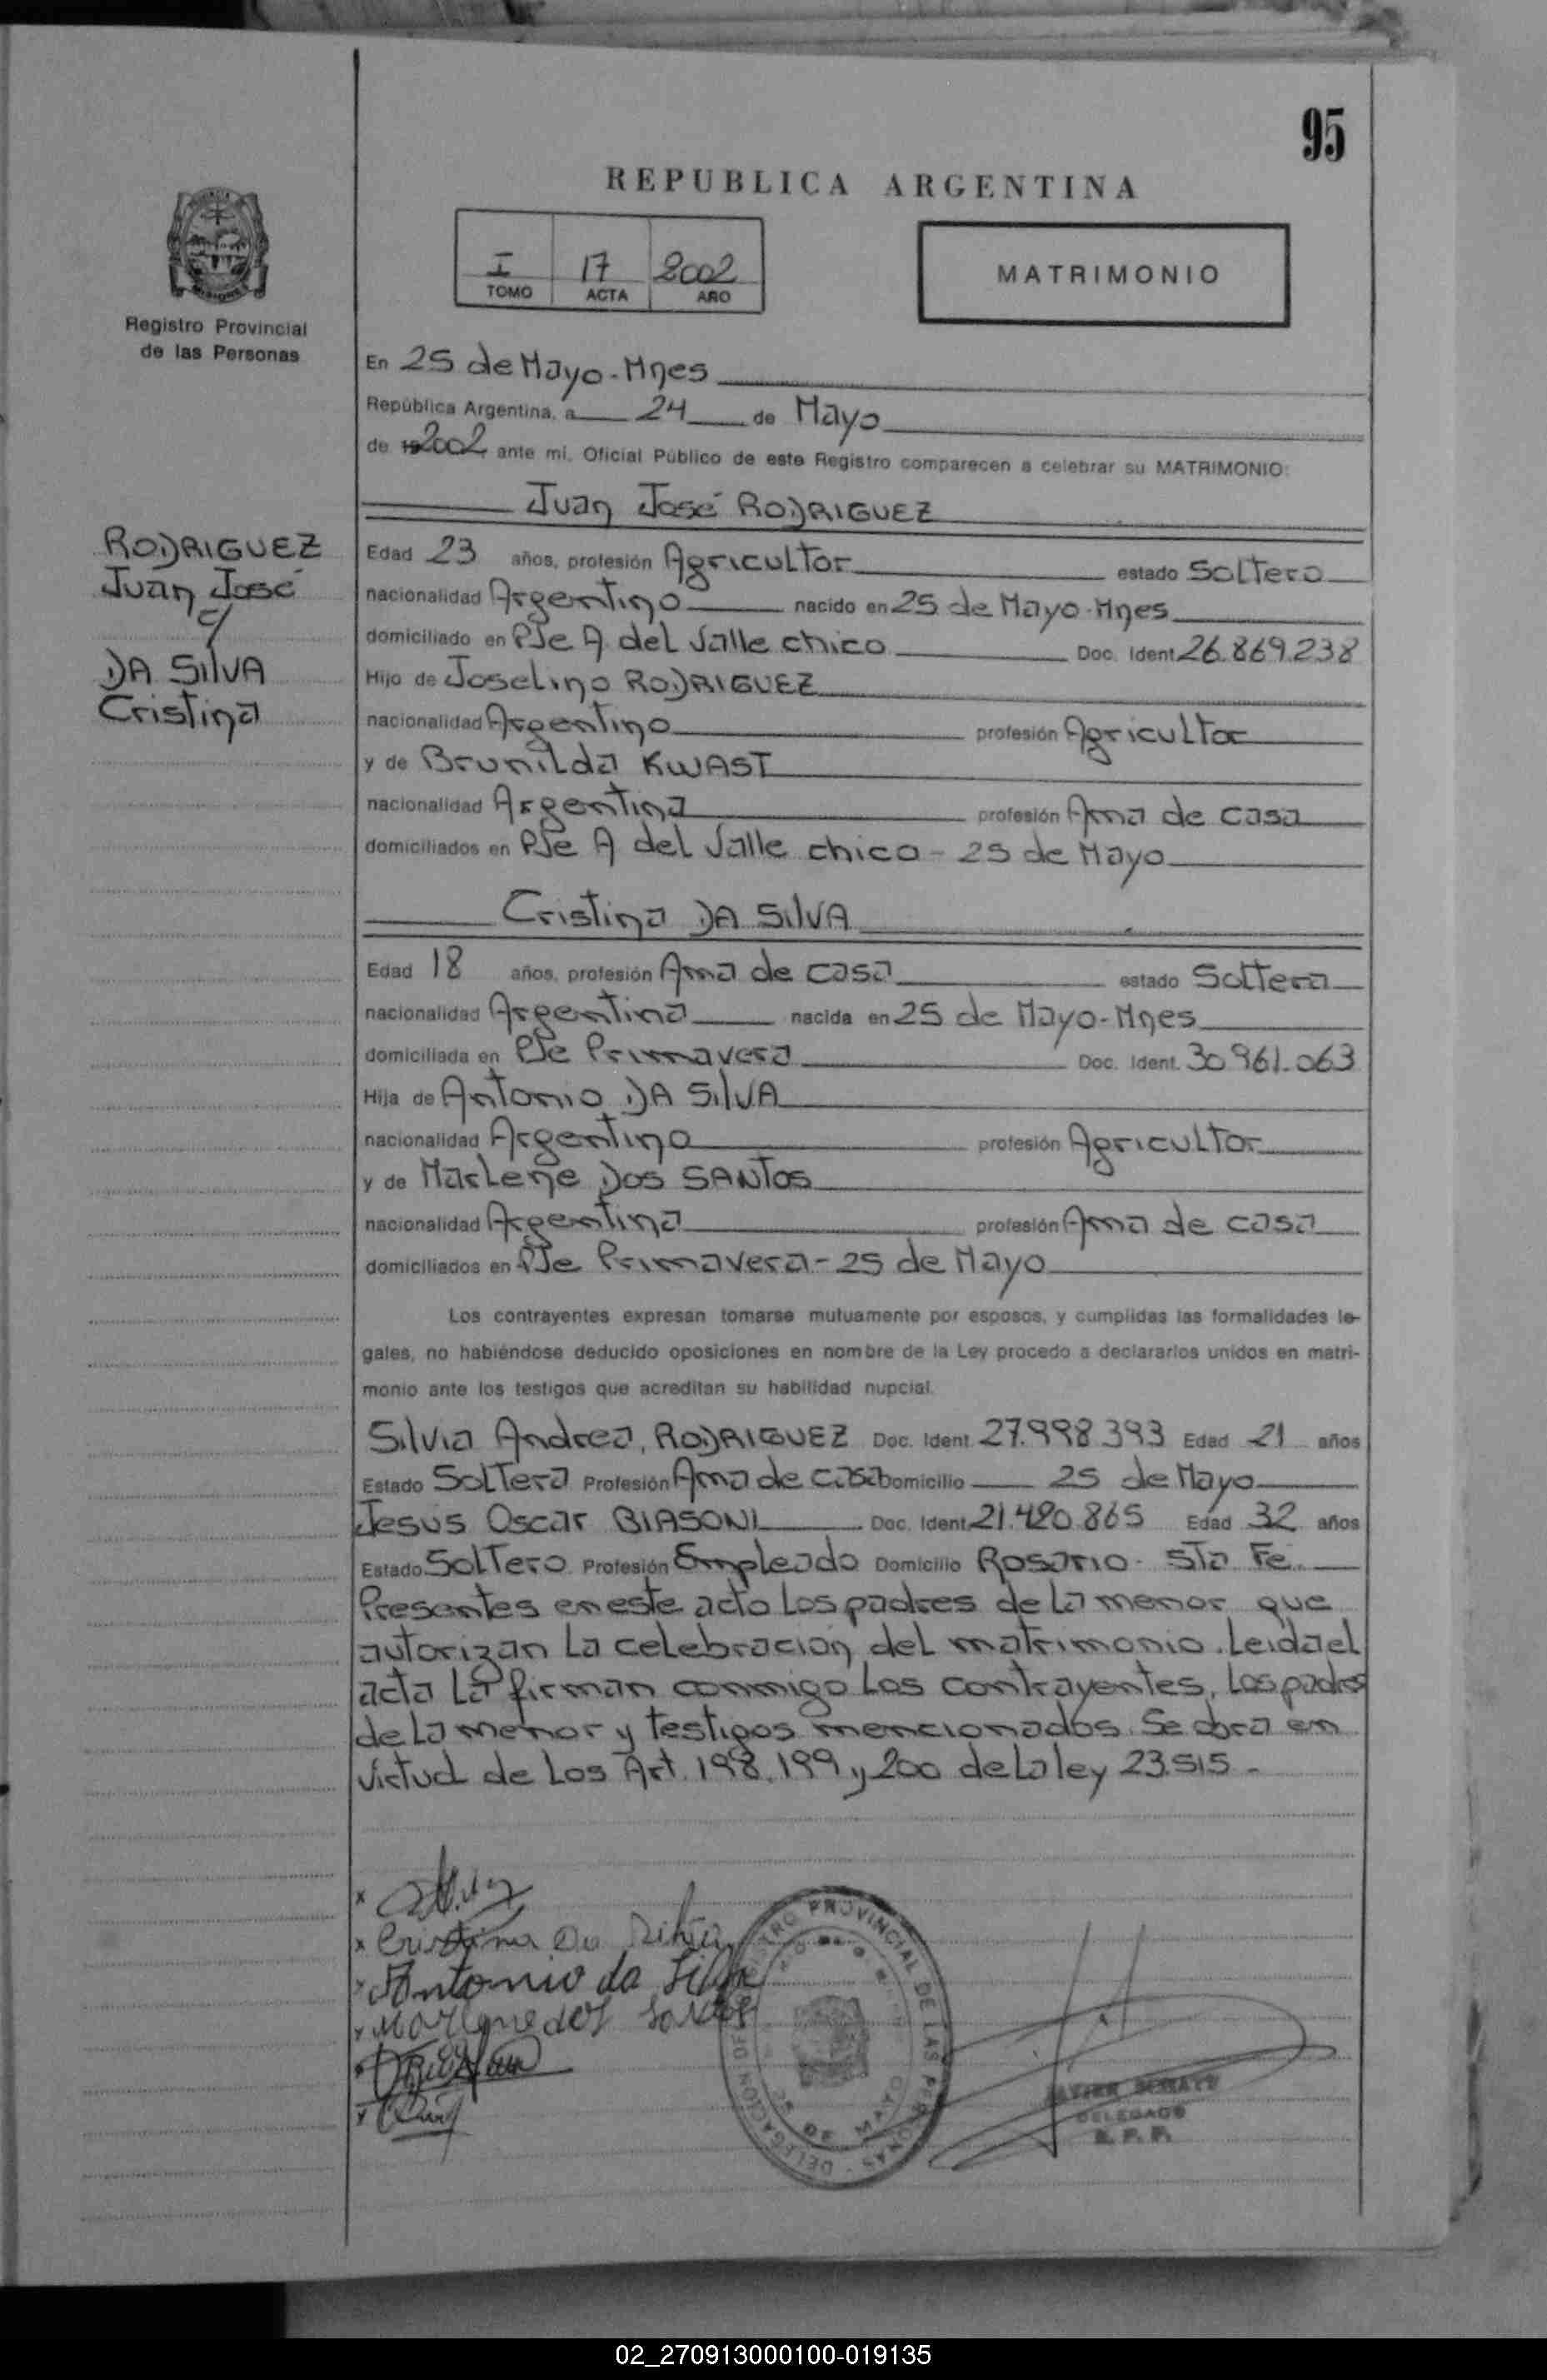 95
REPUBLICA ARGENTINA
I 17 2002
TOMO ACTA AÑO
MATRIMONIO
Registro Provincial
de las Personas
En 25 de Mayo - Mnes
República Argentina, a 24 de Mayo
de 2002 ante mi, Oficial Público de este Registro comparecen a celebrar su MATRIMONIO:
Juan José RODRIGUEZ
RODRIGUEZ
Juan José
c/
DA SILVA
Cristina
Edad 23 años, profesión Agricultor estado Soltero
nacionalidad Argentino nacido en 25 de Mayo - Mnes
domiciliado en Pje A del Valle chico Doc. Ident. 26.869.238
Hijo de Joselino RODRIGUEZ
nacionalidad Argentino profesión Agricultor
y de Brunilda KWAST
nacionalidad Argentina profesión Ama de casa
domiciliados en Pje A del Valle chico - 25 de Mayo
Cristina DA SILVA
Edad 18 años, profesión Ama de casa estado Soltera
nacionalidad Argentina nacida en 25 de Mayo - Mnes
domiciliada en Pje Primavera Doc. Ident. 30.961.063
Hija de Antonio DA SILVA
nacionalidad Argentino profesión Agricultor
y de Marlene DOS SANTOS
nacionalidad Argentina profesión Ama de casa
domiciliados en Pje Primavera - 25 de Mayo
Los contrayentes expresan tomarse mutuamente por esposos, y cumplidas las formalidades le-
gales, no habiéndose deducido oposiciones en nombre de la Ley procedo a declararlos unidos en matri-
monio ante los testigos que acreditan su habilidad nupcial.
Silvia Andrea, RODRIGUEZ Doc. Ident. 27.998.393 Edad 21 años
Estado Soltera Profesión Ama de casa Domicilio 25 de Mayo
Jesus Oscar BIASONI Doc. Ident. 21.420.865 Edad 32 años
Estado Soltero Profesión Empleado Domicilio Rosario - Sta Fe.
Presentes en este acto los padres de la menor que
autorizan la celebracion del matrimonio. Leida el
acta la firman conmigo los contrayentes, los padres
de la menor y testigos mencionados. Se obra en
virtud de los Art. 198, 199 y 200 de la ley 23.515 -
x
x Cristina Da Silva
x Antonio da Silva
x Marlene dos Santos
x
x
REGISTRO PROVINCIAL DE LAS PERSONAS - DELEGACION DE
25 DE MAYO
DELEGADO
R. P. P.
02_270913000100-019135